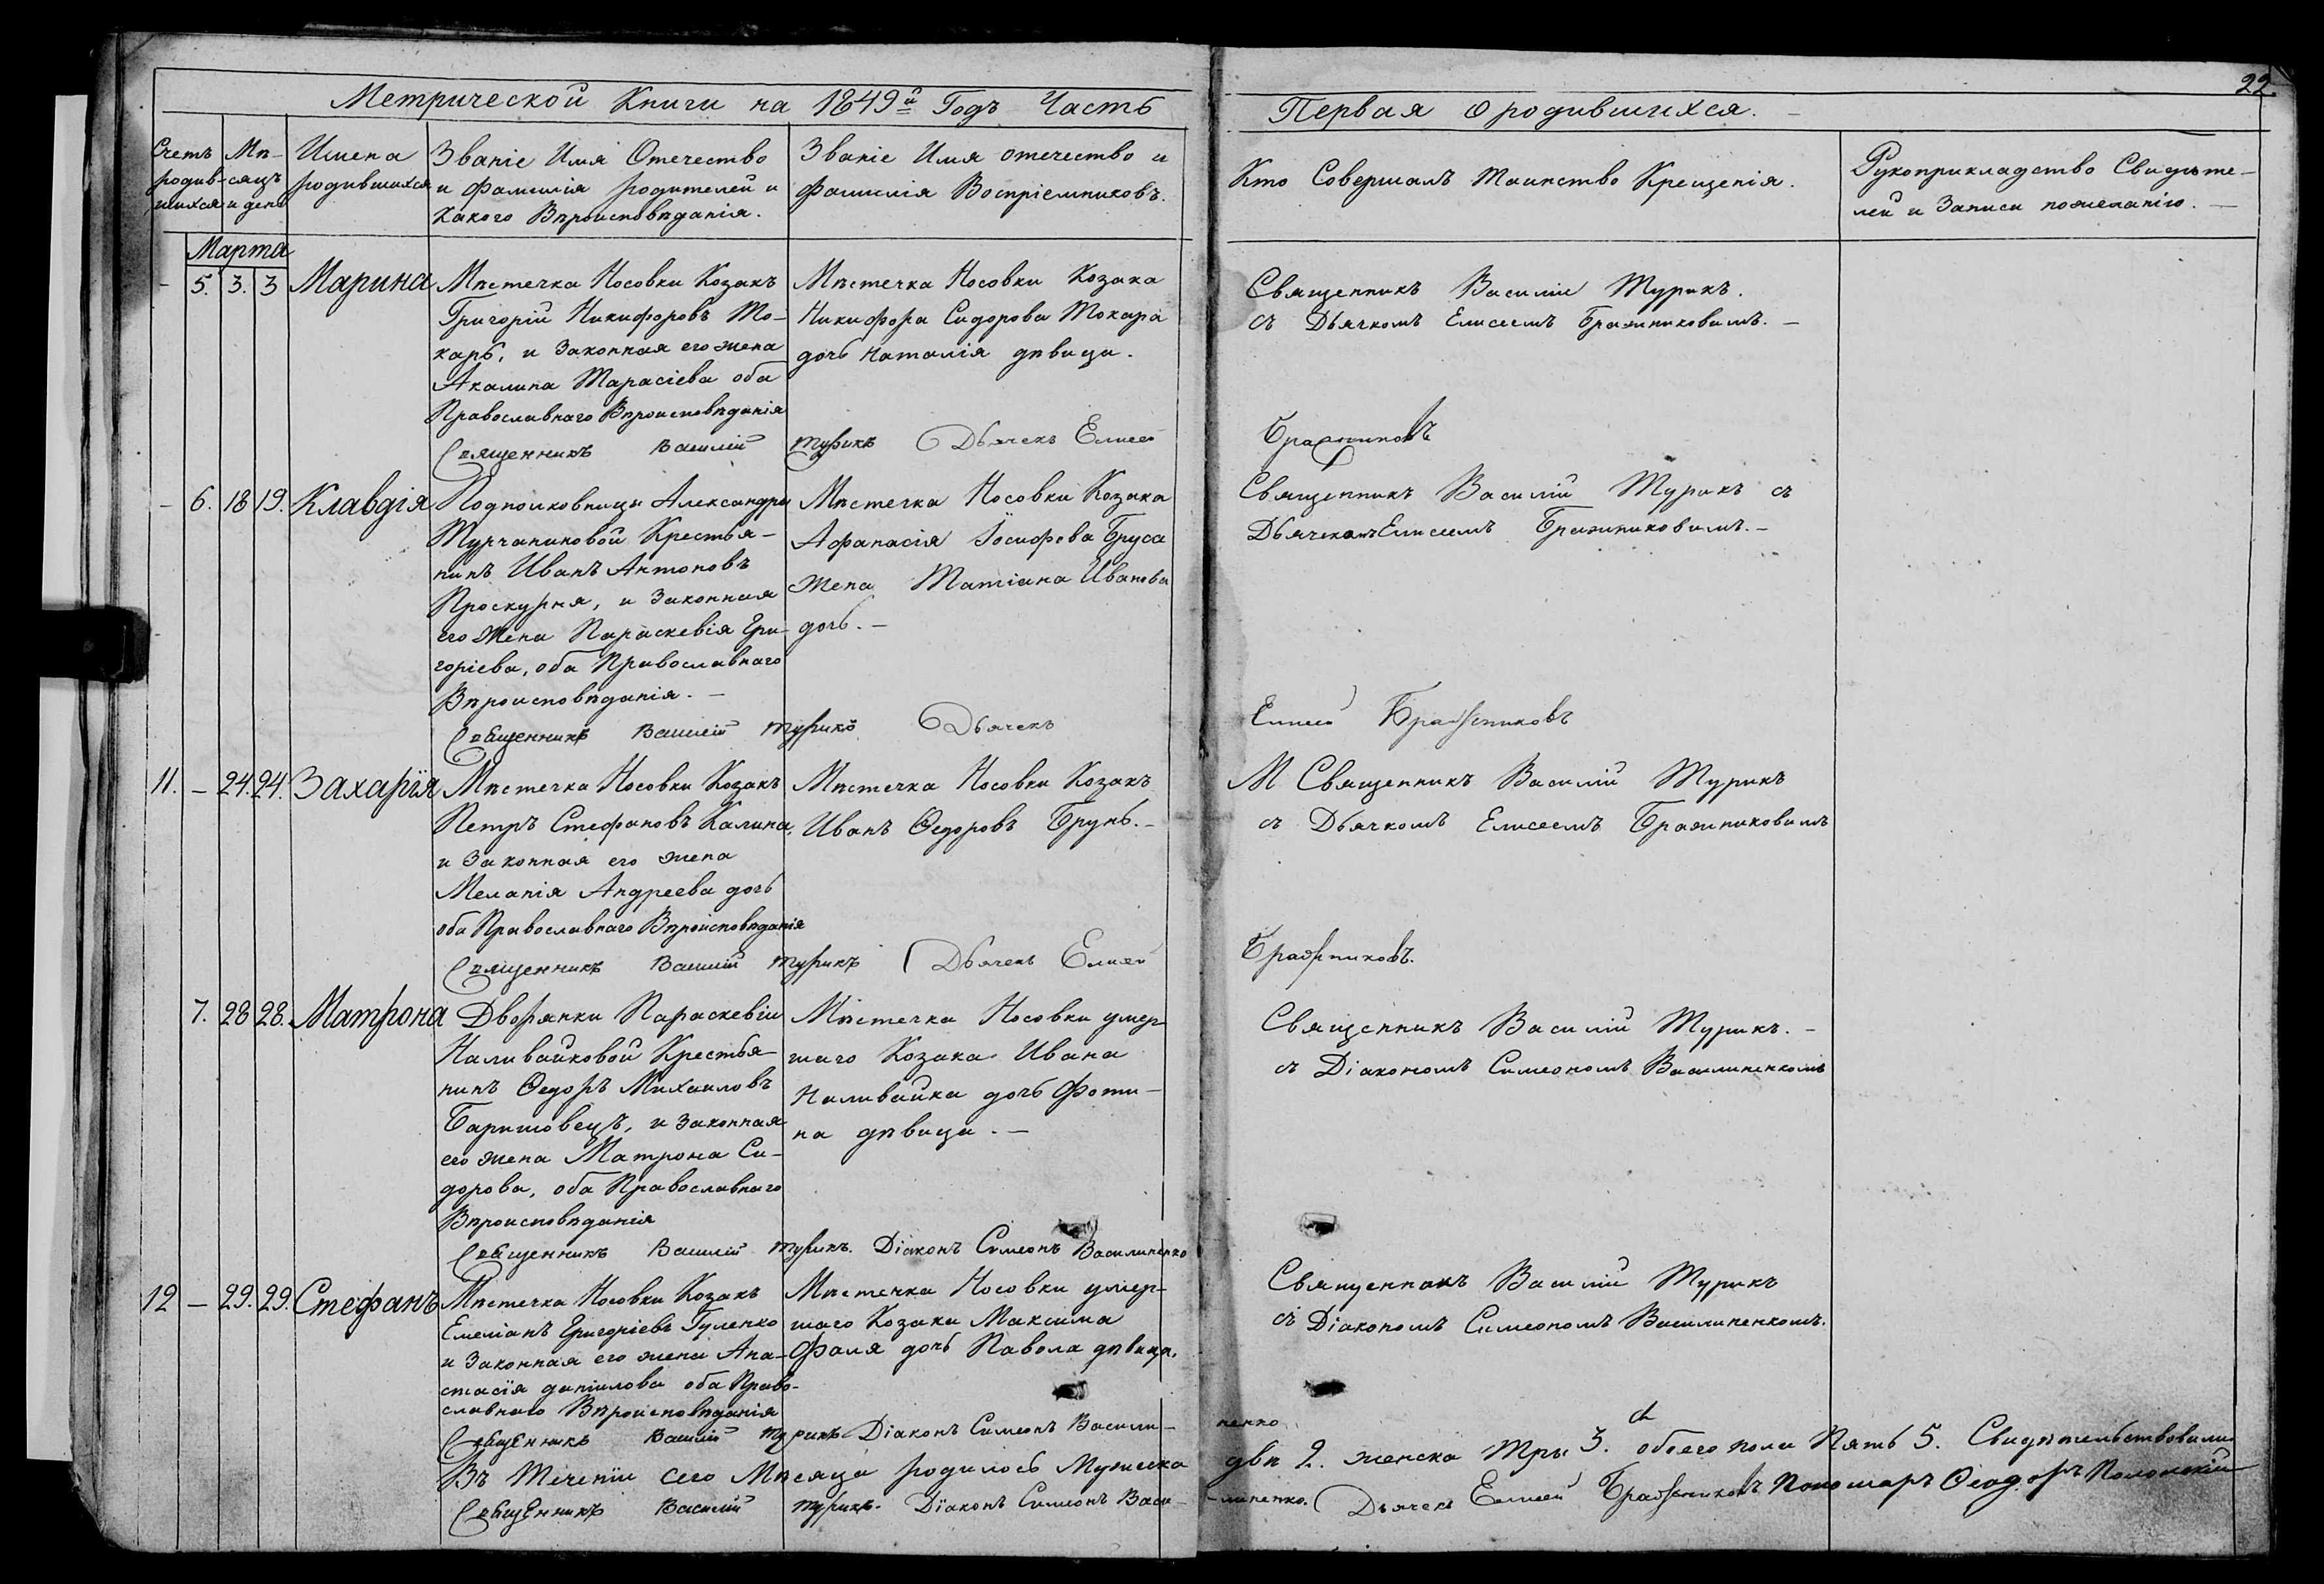 22.
Метрической Книги на 1849й Годъ Часть
Первая о родившихся.
Счетъ родив-шихся
Мѣ-сяцъ и день
Имена родившихся
Званіе Имя Отечество
и Фамилія родителей и
Какого Вѣроисповѣданія.
Званіе Имя отечество и
Фамилія Воспріемниковъ.
Кто Совершалъ Таинство Крещенія.
Рукоприкладство Свидѣте-
лей и Записи пожеланію.
Марта
- 5. 3. 3 Марина
Мѣстечка Носовки Козакъ
Григорій Никифоровъ То-
карь, и Законная его жена
Акалина Тарасіева оба
Православнаго Вѣроисповѣданія
Мѣстечка Носовки Козака
Никифора Сидорова Токара
дочь Наталія дѣвица.
Священникъ Василіе Турикъ.
съ Дьячкомъ Елисеемъ Бражниковимъ.
Священникъ Василій Турикъ Дьячекъ Елисей Бражниковъ
- 6. 18 19. Клавдія
Подполковницы Александры
Турчаниновой Крестья-
нинъ Иванъ Антоновъ
Проскурня, и Законная
его Жена Параскевія Гри-
горіева, оба Православнаго
Вѣроисповѣданія.
Мѣстечка Носовки Козака
Афанасія Іосифова Бруса
жена Татіана Иванова
дочь.
Священникъ Василій Турикъ съ
Дьячкомъ Елисеемъ Бражниковимъ.
Священникъ Василій Турикъ Дьячекъ Елисей Бражниковъ
11. - 24. 24. Захарія
Мѣстечка Носовки Козакъ
Петръ Стефановъ Калина,
и Законная его жена
Меланія Андреева дочь
оба Православнаго Вѣроисповѣданія
Мѣстечка Носовки Козакъ
Иванъ Ѳедоровъ Брунь.
М Священникъ Василій Турикъ
съ Дьячкомъ Елисеемъ Бражниковимъ
Священникъ Василій Турикъ Дьячекъ Елисей Бражниковъ.
7. 28 28. Матрона
Дворянки Параскевіи
Наливайковой Крестья-
нинъ Ѳедоръ Михаиловъ
Баришовецъ, и Законная
его жена Матрона Си-
дорова, оба Православнаго
Вѣроисповѣданія
Мѣстечка Носовки умер-
шаго Козака Ивана
Наливайка дочь Фоти-
на дѣвица.
Священникъ Василій Турикъ.
съ Діакономъ Симеономъ Василиненкомъ
Священникъ Василій Турикъ. Діаконъ Симеонъ Василиненко
12 - 29. 29. Стефанъ
Мѣстечка Носовки Козакъ
Емеліанъ Григоріевъ Гуленко
и Законная его жена Ана-
стасія даніилова оба Право-
славнаго Вѣроисповѣданія
Мѣстечка Носовки умер-
шаго Козака Максима
Фаля дочь Павола дѣвица.
Священникъ Василій Турикъ
съ Діакономъ Симеономъ Василиненкомъ.
Священникъ Василій Турикъ Діаконъ Симеонъ Васили-ненко
Въ Теченіи Сего Мѣсяца родилось Мужеска двѣ 2. женска Три 3. обоего пола Пять 5. Свидѣтельствовали
Священникъ Василій Турикъ. Діаконъ Симеонъ Васи-линенко. Дьячекъ Елисей Бражниковъ Пономаръ Ѳеодоръ Полонскій